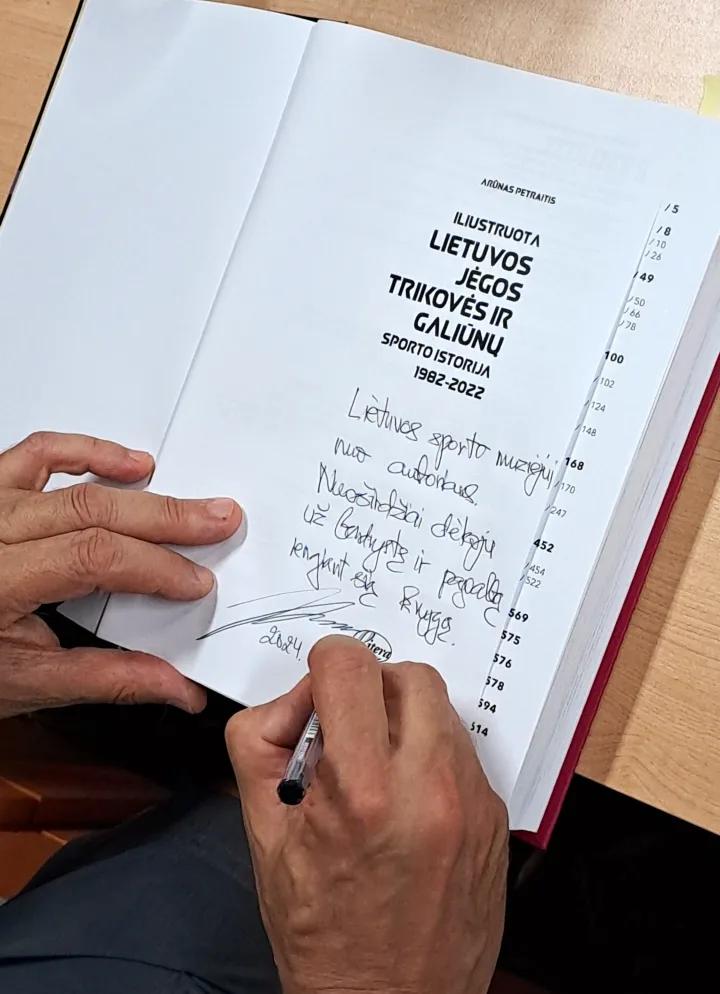 ARŪNAS PETRAITIS
ILIUSTRUOTA
LIETUVOS
JĖGOS
TRIKOVĖS IR
GALIŪNŲ
SPORTO ISTORIJA
1982-2022
Lietuvos sporto muziejui
nuo autoriaus.
Nuoširdžiai dėkoju
už bendrystę ir pagalbą
rengiant šią knygą.
2024.
/ 5
/ 8
/ 10
/ 26
/ 49
/ 50
/ 66
/ 78
100
/ 102
/ 124
/ 148
168
/ 170
/ 247
452
/ 454
/ 522
569
575
576
578
594
614